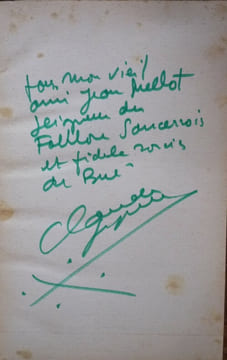 Pour mon vieil
ami Jean Mellot
seigneur du
Folklore Sancerrois
et fidele
de Bué